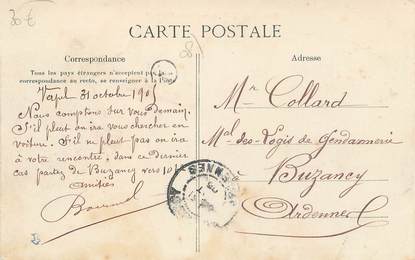 30 €
CARTE POSTALE
Correspondance
Tous les pays étrangers n'acceptent pas la
correspondance au recto, se renseigner à la Poste
31 octobre 190
Nous comptons sur vous demain.
S'il pleut on ira vous chercher en
voiture. S'il ne pleut pas on ira
à votre rencontre; dans ce dernier
cas partez de Buzancy vers 10h
amitiés
Adresse
Mr Collard
Mal-des-Logis de Gendarmerie
à Buzancy
Ardennes